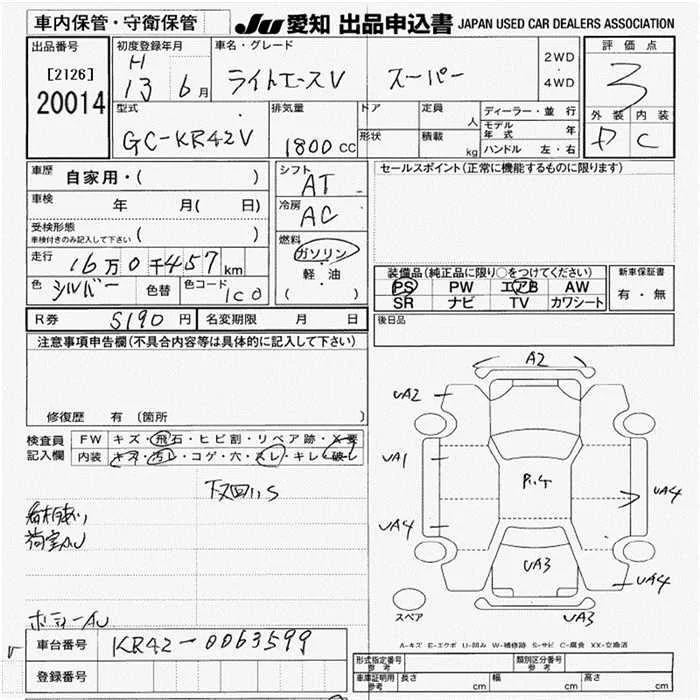 車内保管・守衛保管
JU 愛知 出品申込書 JAPAN USED CAR DEALERS ASSOCIATION
出品番号 初度登録年月 車名・グレード 評価点
[2126] H 13 6月 ライトエースV スーパー 2WD・4WD 3
20014
型式 排気量 ドア 定員 人 ディーラー・並行 外装 内装
GC-KR42V 1800CC 形状 積載 kg モデル年式 年 C
ハンドル 左・右
車歴 自家用・( ) シフト AT セールスポイント(正常に機能するものに限ります)
車検 年 月( 日) 冷房 AC
受検形態 車検付きのみ記入して下さい ( )
走行 16万0千457km 燃料 ガソリン・軽油 ( )
装備品(純正品に限り○をつけてください) 新車保証書
色 シルバー 色替 色コード 1C0
PS PW エアB AW 有・無
SR ナビ TV カワシート
R券 5190円 名変期限 月 日 後日品
注意事項申告欄(不具合内容等は具体的に記入して下さい)
A2
UA2
修復歴 有(箇所
検査員記入欄 FW キズ・飛石・ヒビ割・リペア跡・X要
内装 キズ・汚レ・コゲ・穴・スレ・キレ・破レ
UA1
下回りS
R.T
UA4
UA4
荷室AU
UA3
UA4
ボディーAU
スペア
UA3
A-キズ E-エクボ U-凹み W-補修跡 S-サビ C-腐食 XX-交換済
車台番号 KR42-0063599
登録番号
形式指定番号 参考 類別区分番号 参考
車庫証明用 参考 長さ cm 幅 cm 高さ cm